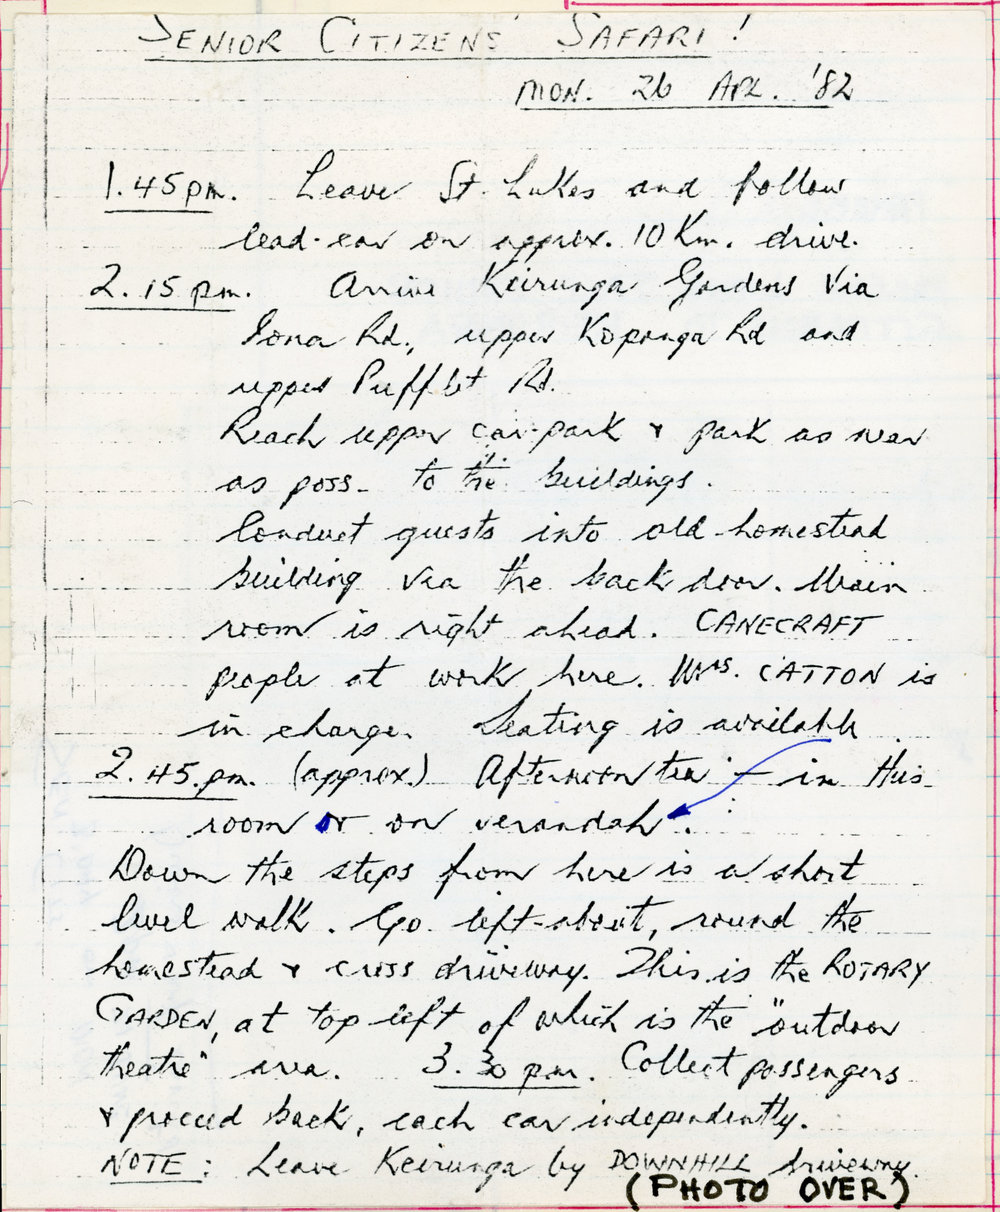 SENIOR CITIZENS' SAFARI!
MON. 26 APL. '82
1.45pm. Leave St. Lukes and follow
lead-car on approx. 10 Km. drive.
2.15 pm. Arrive Keirunga Gardens Via
Iona Rd., upper Kopanga Rd and
upper Puflett Rd.
Reach upper car-park & park as near
as poss- to the buildings.
Conduct guests into old homestead
building via the back door. Main
room is right ahead. CANECRAFT
people at work here. Mrs. CATTON is
in charge. Seating is available.
2.45.pm. (approx.) Afternoon tea - in this
room or on verandah.
Down the steps from here is a short
level walk. Go left-about, round the
homestead & cross driveway. This is the ROTARY
GARDEN, at top left of which is the "outdoor
theatre" area. 3.30 pm. Collect passengers
& proceed back, each car independently.
NOTE: Leave Keirunga by DOWNHILL driveway.
(PHOTO OVER)